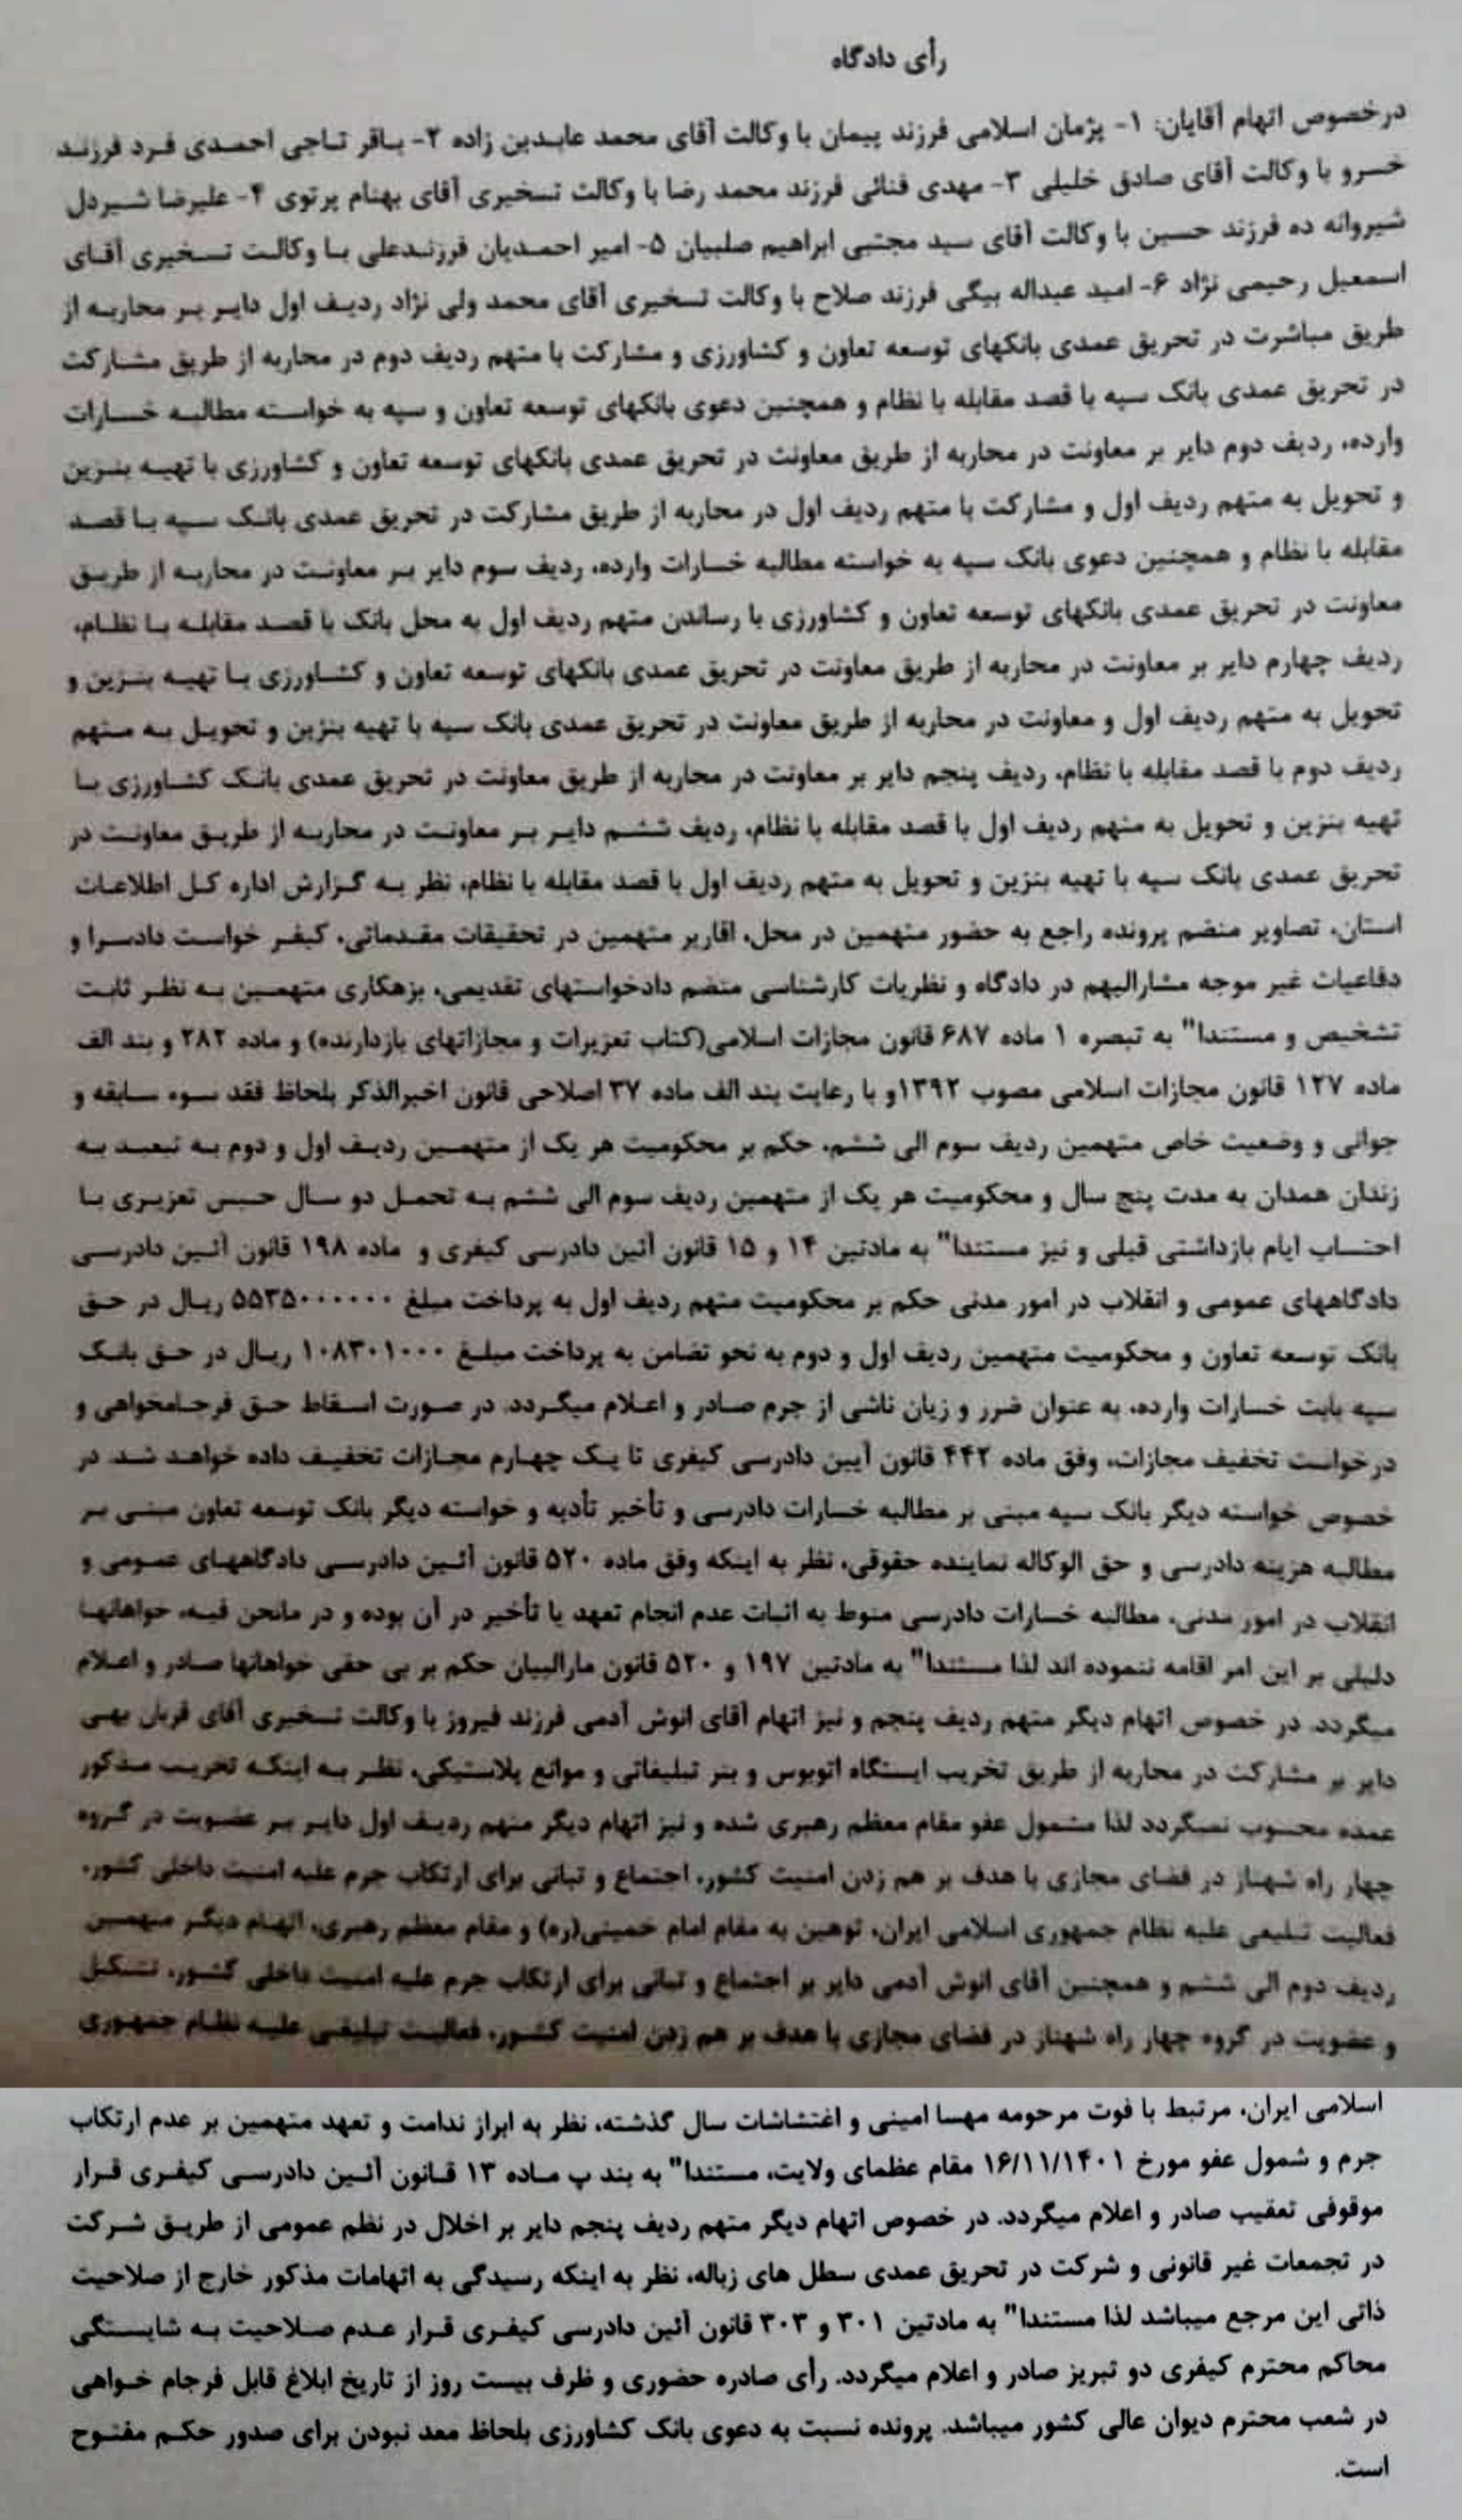 رأی دادگاه
درخصوص اتهام آقایان: ۱- پژمان اسلامی فرزند پیمان با وکالت آقای محمد عابدین زاده ۲- باقر تاجی احمدی فرد فرزند
خسرو با وکالت آقای صادق خلیلی ۳- مهدی فنائی فرزند محمد رضا با وکالت تسخیری آقای بهنام پرتوی ۴- علیرضا شیردل
شیروانه ده فرزند حسین با وکالت آقای سید مجتبی ابراهیم صلبیان ۵- امیر احمدیان فرزندعلی با وکالت تسخیری آقای
اسمعیل رحیمی نژاد ۶- امید عبداله بیگی فرزند صلاح با وکالت تسخیری آقای محمد ولی نژاد ردیف اول دایر بر محاربه از
طریق مباشرت در تحریق عمدی بانکهای توسعه تعاون و کشاورزی و مشارکت با متهم ردیف دوم در محاربه از طریق مشارکت
در تحریق عمدی بانک سپه با قصد مقابله با نظام و همچنین دعوی بانکهای توسعه تعاون و سپه به خواسته مطالبه خسارات
وارده، ردیف دوم دایر بر معاونت در محاربه از طریق معاونت در تحریق عمدی بانکهای توسعه تعاون و کشاورزی با تهیه بنزین
و تحویل به متهم ردیف اول و مشارکت با متهم ردیف اول در محاربه از طریق مشارکت در تحریق عمدی بانک سپه با قصد
مقابله با نظام و همچنین دعوی بانک سپه به خواسته مطالبه خسارات وارده، ردیف سوم دایر بر معاونت در محاربه از طریق
معاونت در تحریق عمدی بانکهای توسعه تعاون و کشاورزی با رساندن متهم ردیف اول به محل بانک با قصد مقابله با نظام،
ردیف چهارم دایر بر معاونت در محاربه از طریق معاونت در تحریق عمدی بانکهای توسعه تعاون و کشاورزی با تهیه بنزین و
تحویل به متهم ردیف اول و معاونت در محاربه از طریق معاونت در تحریق عمدی بانک سپه با تهیه بنزین و تحویل به متهم
ردیف دوم با قصد مقابله با نظام، ردیف پنجم دایر بر معاونت در محاربه از طریق معاونت در تحریق عمدی بانک کشاورزی با
تهیه بنزین و تحویل به متهم ردیف اول با قصد مقابله با نظام، ردیف ششم دایر بر معاونت در محاربه از طریق معاونت در
تحریق عمدی بانک سپه با تهیه بنزین و تحویل به متهم ردیف اول با قصد مقابله با نظام، نظر به گزارش اداره کل اطلاعات
استان، تصاویر منضم پرونده راجع به حضور متهمین در محل، اقاریر متهمین در تحقیقات مقدماتی، کیفر خواست دادسرا و
دفاعیات غیر موجه مشارالیهم در دادگاه و نظریات کارشناسی منضم دادخواستهای تقدیمی، بزهکاری متهمین به نظر ثابت
تشخیص و مستندا" به تبصره ۱ ماده ۶۸۷ قانون مجازات اسلامی(کتاب تعزیرات و مجازاتهای بازدارنده) و ماده ۲۸۲ و بند الف
ماده ۱۲۷ قانون مجازات اسلامی مصوب ۱۳۹۲و با رعایت بند الف ماده ۳۷ اصلاحی قانون اخیرالذکر بلحاظ فقد سوء سابقه و
جوانی و وضعیت خاص متهمین ردیف سوم الی ششم، حکم بر محکومیت هر یک از متهمین ردیف اول و دوم به تبعید به
زندان همدان به مدت پنج سال و محکومیت هر یک از متهمین ردیف سوم الی ششم به تحمل دو سال حبس تعزیری با
احتساب ایام بازداشتی قبلی و نیز مستندا" به مادتین ۱۴ و ۱۵ قانون آئین دادرسی کیفری و ماده ۱۹۸ قانون آئین دادرسی
دادگاههای عمومی و انقلاب در امور مدنی حکم بر محکومیت متهم ردیف اول به پرداخت مبلغ ۵۵۳۵۰۰۰۰۰۰ ریال در حق
بانک توسعه تعاون و محکومیت متهمین ردیف اول و دوم به نحو تضامن به پرداخت مبلغ ۱۰۸۳۰۱۰۰۰ ریال در حق بانک
سپه بابت خسارات وارده، به عنوان ضرر و زیان ناشی از جرم صادر و اعلام میگردد. در صورت اسقاط حق فرجامخواهی و
درخواست تخفیف مجازات، وفق ماده ۴۴۲ قانون آیین دادرسی کیفری تا یک چهارم مجازات تخفیف داده خواهد شد. در
خصوص خواسته دیگر بانک سپه مبنی بر مطالبه خسارات دادرسی و تأخیر تأدیه و خواسته دیگر بانک توسعه تعاون مبنی بر
مطالبه هزینه دادرسی و حق الوکاله نماینده حقوقی، نظر به اینکه وفق ماده ۵۲۰ قانون آئین دادرسی دادگاههای عمومی و
انقلاب در امور مدنی، مطالبه خسارات دادرسی منوط به اثبات عدم انجام تعهد یا تأخیر در آن بوده و در مانحن فیه، خواهانها
دلیلی بر این امر اقامه ننموده اند لذا مستندا" به مادتین ۱۹۷ و ۵۲۰ قانون مارالبیان حکم بر بی حقی خواهانها صادر و اعلام
میگردد. در خصوص اتهام دیگر متهم ردیف پنجم و نیز اتهام آقای انوش آدمی فرزند فیروز با وکالت تسخیری آقای قربان بهی
دایر بر مشارکت در محاربه از طریق تخریب ایستگاه اتوبوس و بنر تبلیغاتی و موانع پلاستیکی، نظر به اینکه تخریب مذکور
عمده محسوب نمیگردد لذا مشمول عفو مقام معظم رهبری شده و نیز اتهام دیگر متهم ردیف اول دایر بر عضویت در گروه
چهار راه شهناز در فضای مجازی با هدف بر هم زدن امنیت کشور، اجتماع و تبانی برای ارتکاب جرم علیه امنیت داخلی کشور،
فعالیت تبلیغی علیه نظام جمهوری اسلامی ایران، توهین به مقام امام خمینی(ره) و مقام معظم رهبری، اتهام دیگر متهمین
ردیف دوم الی ششم و همچنین آقای انوش آدمی دایر بر اجتماع و تبانی برای ارتکاب جرم علیه امنیت داخلی کشور، تشکیل
و عضویت در گروه چهار راه شهناز در فضای مجازی با هدف بر هم زدن امنیت کشور، فعالیت تبلیغی علیه نظام جمهوری
اسلامی ایران، مرتبط با فوت مرحومه مهسا امینی و اغتشاشات سال گذشته، نظر به ابراز ندامت و تعهد متهمین بر عدم ارتکاب
جرم و شمول عفو مورخ ۱۶/۱۱/۱۴۰۱ مقام عظمای ولایت، مستندا" به بند پ ماده ۱۳ قانون آئین دادرسی کیفری قرار
موقوفی تعقیب صادر و اعلام میگردد. در خصوص اتهام دیگر متهم ردیف پنجم دایر بر اخلال در نظم عمومی از طریق شرکت
در تجمعات غیر قانونی و شرکت در تحریق عمدی سطل های زباله، نظر به اینکه رسیدگی به اتهامات مذکور خارج از صلاحیت
ذاتی این مرجع میباشد لذا مستندا" به مادتین ۳۰۱ و ۳۰۳ قانون آئین دادرسی کیفری قرار عدم صلاحیت به شایستگی
محاکم محترم کیفری دو تبریز صادر و اعلام میگردد. رأی صادره حضوری و ظرف بیست روز از تاریخ ابلاغ قابل فرجام خواهی
در شعب محترم دیوان عالی کشور میباشد. پرونده نسبت به دعوی بانک کشاورزی بلحاظ معد نبودن برای صدور حکم مفتوح
است.